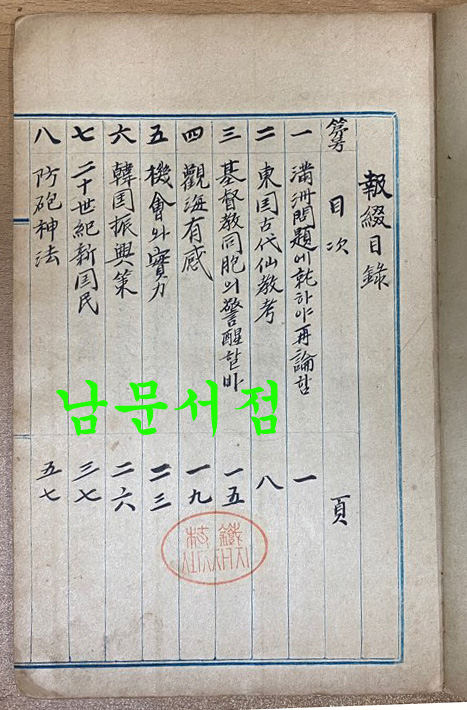 報綴目錄
目次 頁
一 滿洲問題에就하야再論함 一
二 東国古代仙敎考 八
三 基督敎同胞의警醒할바 一五
四 觀海有感 一九
五 機會와實力 二三
六 韓国振興策 二六
七 二十世紀新国民 三七
八 防砲神法 五七
남문서점